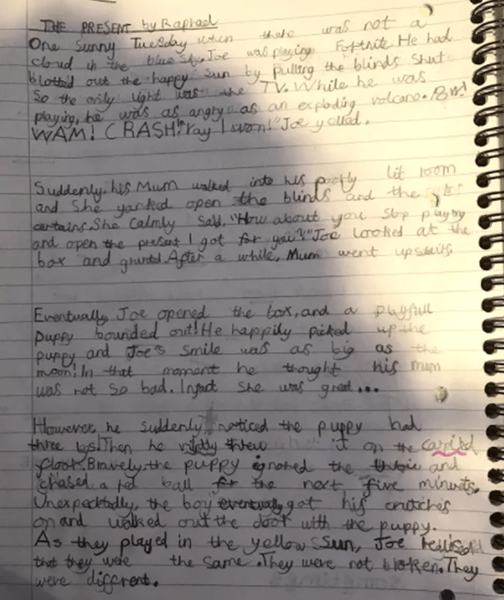 THE PRESENT by Raphael
One Sunny Tuesday when there was not a
cloud in the blue sky, Joe was playing Fortnite. He had
blotted out the happy sun by pulling the blinds shut
So the only light was the TV. While he was
playing, he was as angry as an exploding volcano. POW!
WAM! CRASH! "Yay I won!" Joe yelled.
Suddenly, his Mum walked into his poorly lit room
and She yanked open the blinds and the
certains. She Calmly Said, "How about you Stop playing
and open the present I got for you?" Joe looked at the
box and grunted. After a while, Mum went upstairs.
Eventually Joe opened the box, and a playfull
Puppy bounded out! He happily picked up the
puppy and Joe's smile was as big as the
moon! In that moment he thought his mum
was not so bad. Infact she was great...
However he suddenly noticed the puppy had
three legs! Then he threw it on the
floor. Bravely, the puppy ignored the and
chased a red ball for the next five minutes.
Unexpectedly, the boy got his crutches
on and walked out the door with the puppy.
As they played in the yellow sun, Joe
that they were the same. They were not broken. They
were different.